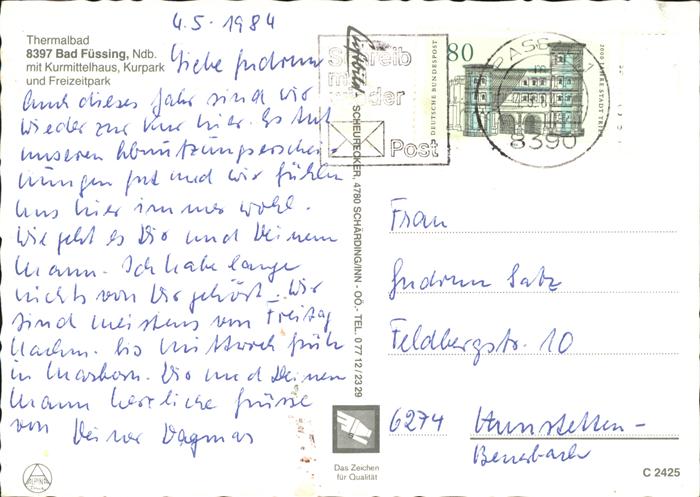 4.5.1984
Thermalbad
8397 Bad Füssing, Ndb.
mit Kurmittelhaus, Kurpark
und Freizeitpark
Liebe Gudrun
Auch dieses Jahr sind wir
wieder zur Kur hier. Es tut
unseren Abnutzungserschei-
nungen gut und wir fühlen
uns hier immer wohl.
Wie geht es Dir und Deinem
Mann. Ich habe lange
nichts von Dir gehört. Wir
sind meistens von Freitag
Nachm. bis Mittwoch früh
in Marborn. Dir und Deinem
Mann herzliche Grüsse
von Deiner Dagmar
Luftbild
SCHEURECKER, 4780 SCHÄRDING/INN - OÖ,- TEL. 0 77 12 / 23 29
Schreib
mal
wieder
Post
80
DEUTSCHE BUNDESPOST
2000 JAHRE STADT TRIER
PASSAU 1
8390
Frau
Gudrun Satz
Feldbergstr. 10
6274 Hünstetten-
Beuerbach
Das Zeichen
für Qualität
C 2425